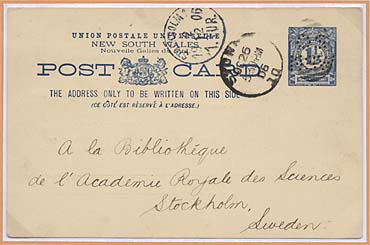 UNION POSTALE UNIVERSELLE
NEW SOUTH WALES
Nouvelle Galles du
POST CARD
THE ADDRESS ONLY TO BE WRITTEN ON THIS SIDE
(CE CÔTÉ EST RÉSERVÉ À L'ADRESSE.)
A la Bibliothèque
de l'Académie Royale des Sciences
Stockholm,
Sweden.